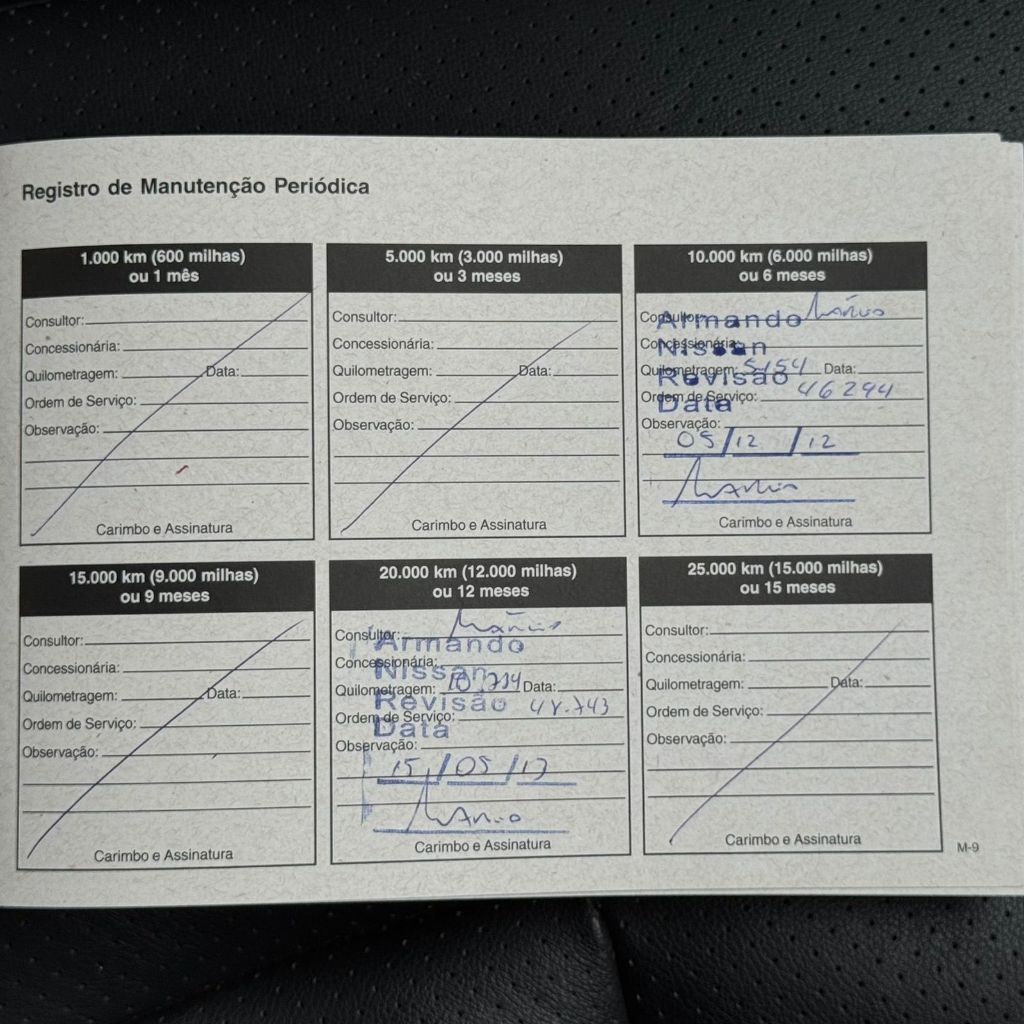 Registro de Manutenção Periódica
1.000 km (600 milhas)
ou 1 mês
Consultor:
Concessionária:
Quilometragem: Data:
Ordem de Serviço:
Observação:
Carimbo e Assinatura
5.000 km (3.000 milhas)
ou 3 meses
Consultor:
Concessionária:
Quilometragem: Data:
Ordem de Serviço:
Observação:
Carimbo e Assinatura
10.000 km (6.000 milhas)
ou 6 meses
Consultor: Márcio
Armando
Concessionária:
Nissan
Quilometragem: 5154 Data:
Revisão
Ordem de Serviço: 46294
Data
Observação:
05/12/12
Carimbo e Assinatura
15.000 km (9.000 milhas)
ou 9 meses
Consultor:
Concessionária:
Quilometragem: Data:
Ordem de Serviço:
Observação:
Carimbo e Assinatura
20.000 km (12.000 milhas)
ou 12 meses
Consultor: Márcio
Armando
Concessionária:
Nissan
Quilometragem: Data:
Revisão
Ordem de Serviço: 48.743
Data
Observação:
15/05/13
Carimbo e Assinatura
25.000 km (15.000 milhas)
ou 15 meses
Consultor:
Concessionária:
Quilometragem: Data:
Ordem de Serviço:
Observação:
Carimbo e Assinatura
M-9